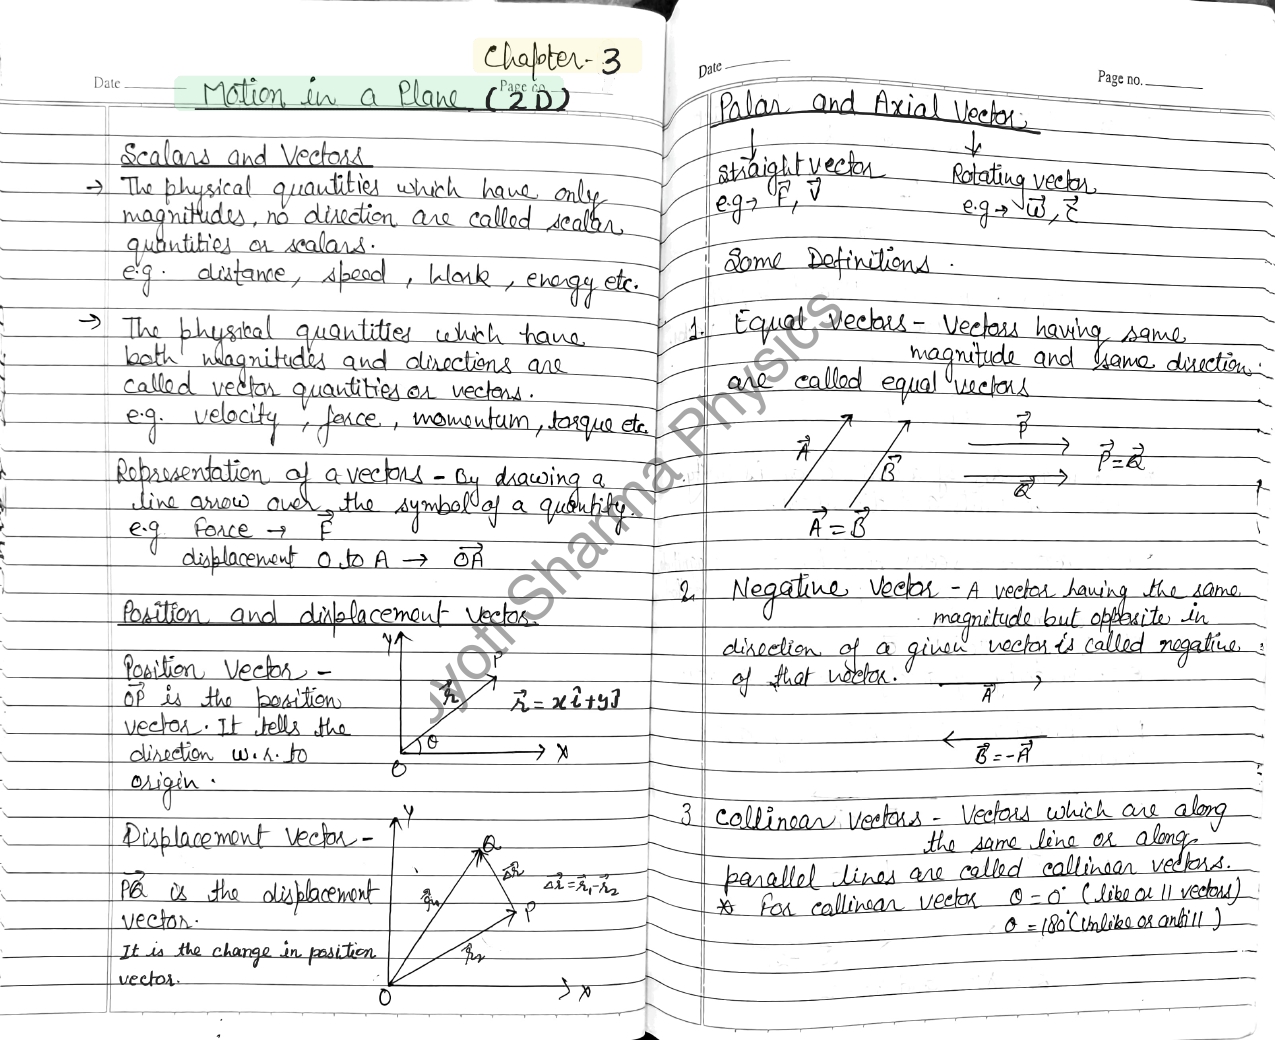 Chapter-3
Date
Page no.
Motion in a Plane (2D)
Scalars and Vectors
→ The physical quantities which have only
magnitudes, no direction are called scalar
quantities or scalars.
e.g. distance, speed, Work, energy etc.
→ The physical quantities which have
both magnitudes and directions are
called vector quantities or vectors.
e.g. velocity, force, momentum, torque etc.
Representation of a vectors - By drawing a
line arrow over the symbol of a quantity.
e.g Force → F⃗
displacement O to A → OA⃗
Position and displacement vector
Position Vector -
OP⃗ is the position
vector. It tells the
direction w.r.to
origin.
Y
P
r⃗
r⃗ = xî+yĵ
θ
X
O
Displacement vector -
PQ⃗ is the displacement
vector.
It is the change in position
vector.
Y
Q
Δr⃗
Δr⃗=r⃗₁-r⃗₂
r⃗₁
P
r⃗₂
O
X
Date
Page no.
Polar and Axial Vector
↓ ↓
Straight vector Rotating vector
e.g→ F⃗, V⃗ e.g→ ω⃗, τ⃗
Some Definitions.
1. Equal Vectors - Vectors having same
magnitude and same direction
are called equal vectors
A⃗
B⃗
P⃗
Q⃗
P⃗=Q⃗
A⃗ = B⃗
2. Negative Vector - A vector having the same
magnitude but opposite in
direction of a given vector is called negative
of that vector.
A⃗
B⃗ = -A⃗
3 Collinear vectors - Vectors which are along
the same line or along
parallel lines are called collinear vectors.
* For collinear vector θ = 0° (like or || vectors)
θ = 180° (Unlike or anti||)
Jyoti Sharma Physics